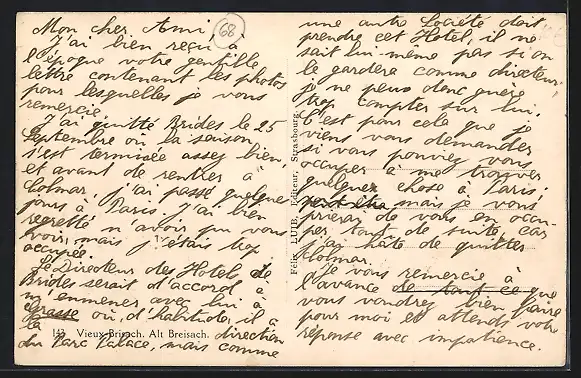 Mon cher Ami,
68
J'ai bien reçu à
l'époque votre gentille
lettre contenant les photos
pour lesquelles je vous
remercie.
J'ai quitté Brides le 25
Septembre où la saison
s'est terminée assez bien,
et avant de rentrer à
Colmar j'ai passé quelque
jours à Paris. J'ai bien
regretté n'avoir pu vous
voir, mais j'étais trop
occupé.
Le Directeur des Hotels de
Brides serait d'accord à
m'emmener avec lui à
Grasse où, d'habitude, il a
la direction
du Parc Palace, mais comme
143 Vieux-Brisach. Alt Breisach.
Félix LUIB, Editeur, Strasbourg.
une autre Société doit
prendre cet Hotel, il ne
sait lui-même pas si on
le gardera comme directeur
je ne peux donc guère
trop compter sur lui.
C'est pour cela que je
viens vous demander
si vous pouviez vous
occuper à me trouver
quelque chose à Paris.
peut être mais je vous
prierai de vous en occu-
per tout de suite, car
j'ai hâte de quitter
Colmar.
Je vous remercie à
l'avance de tout ce que
vous voudrez bien faire
pour moi et attends votre
réponse avec impatience.